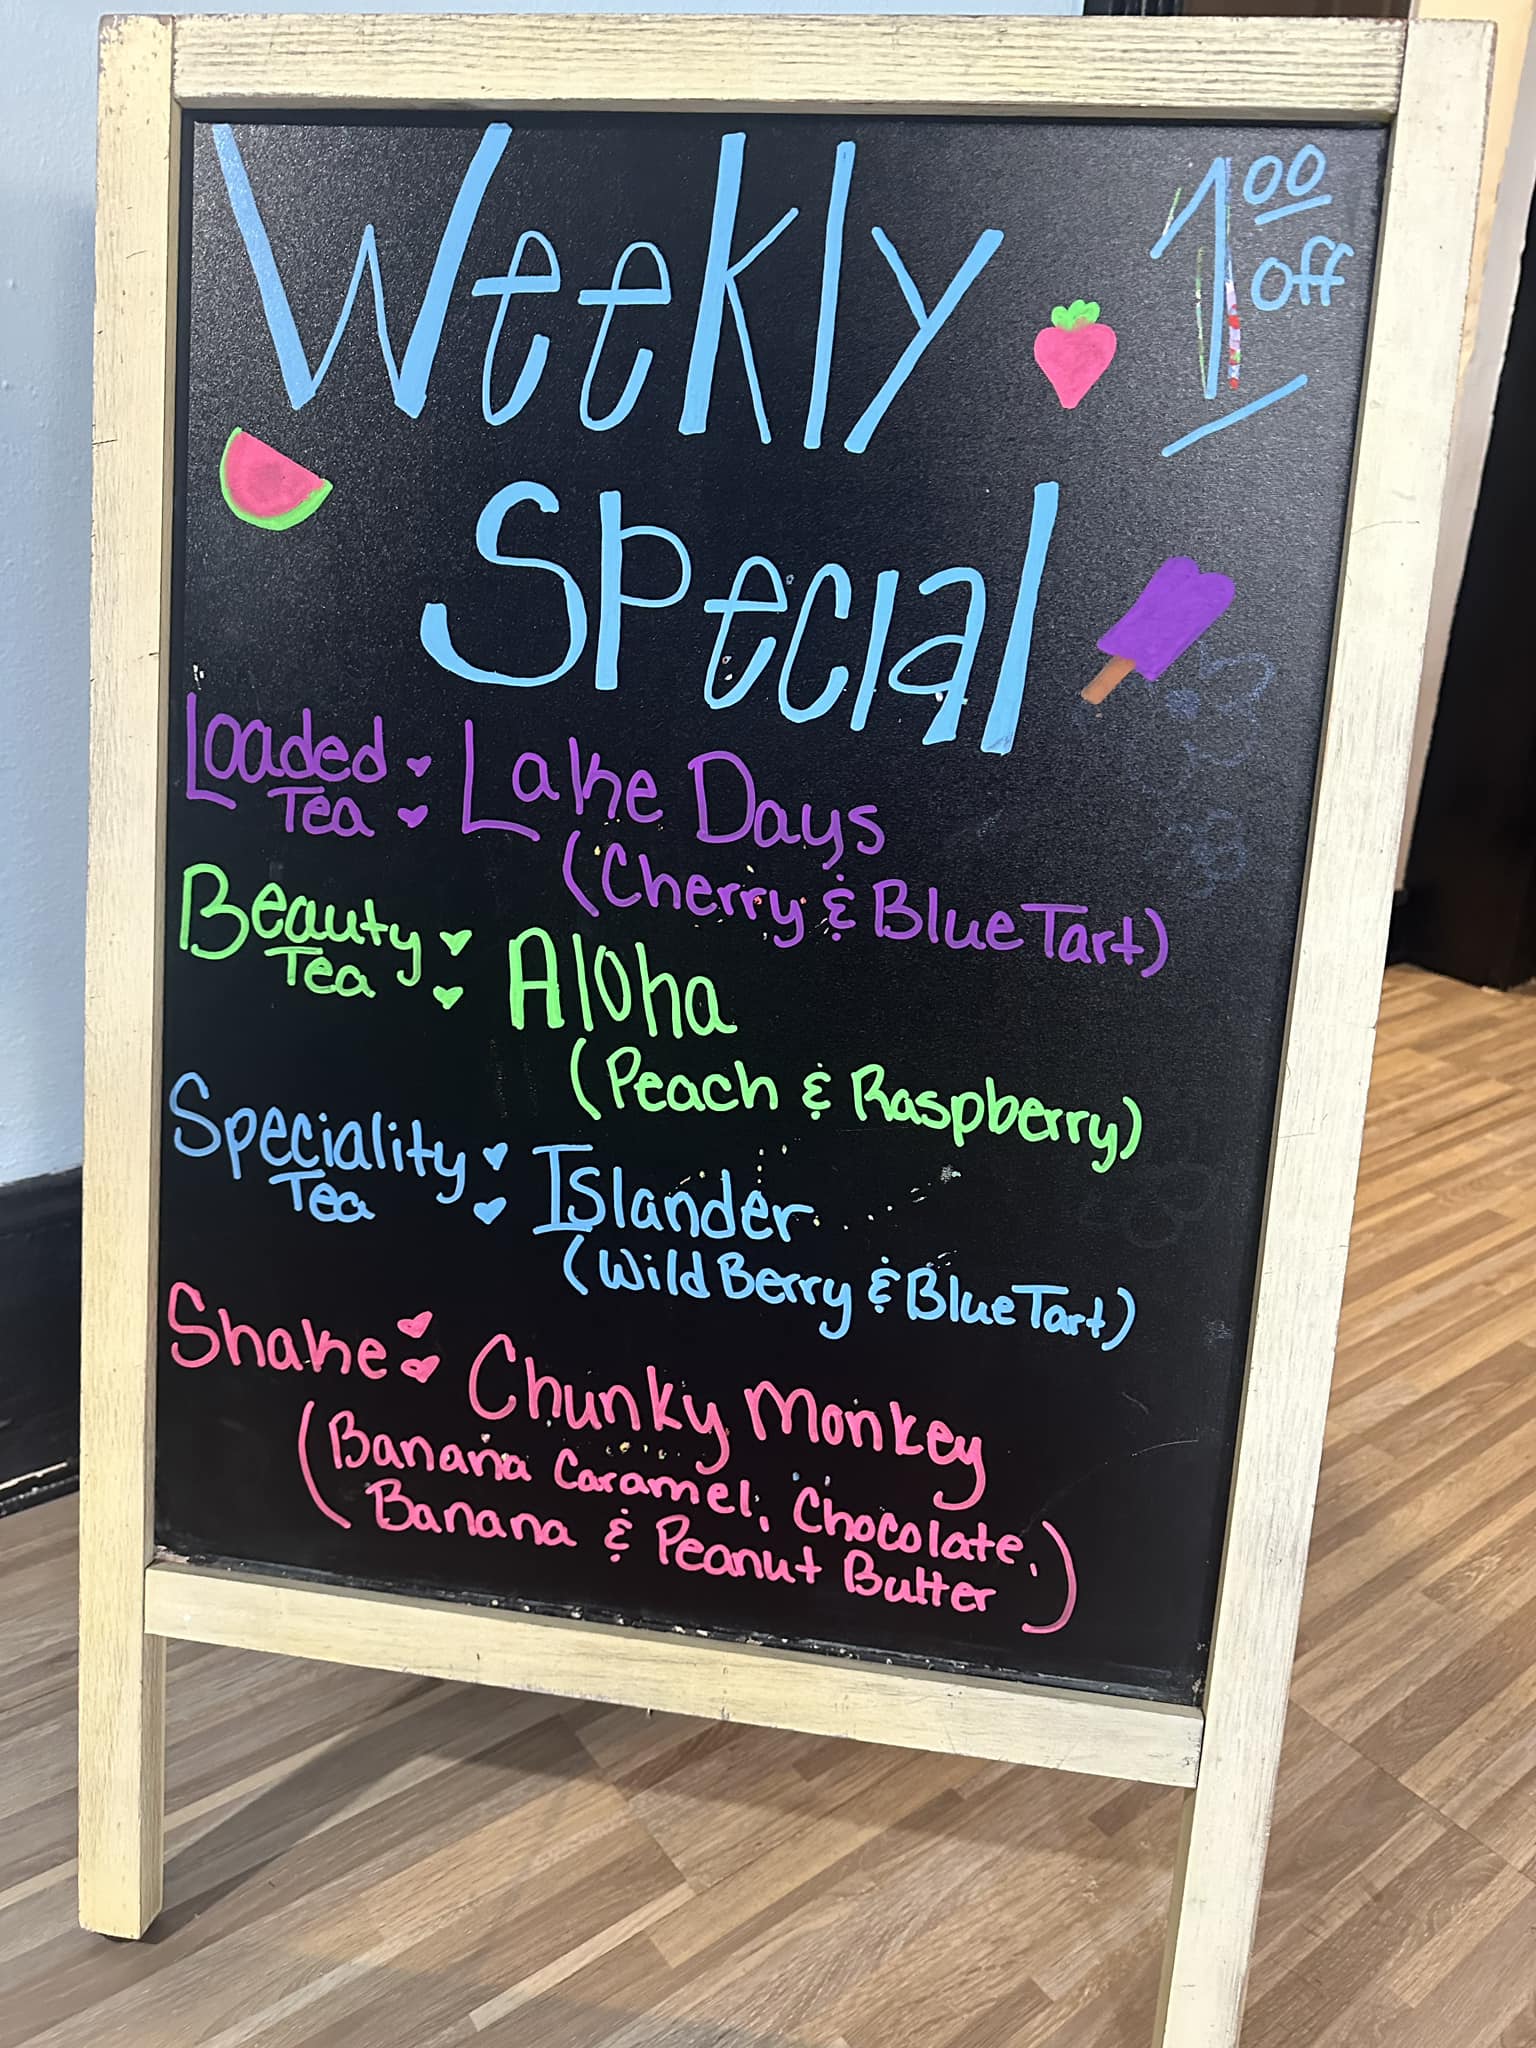 Weekly
Special
1 00
Off
Loaded Tea : Lake Days
(Cherry & Blue Tart)
Beauty Tea : Aloha
(Peach & Raspberry)
Speciality Tea : Islander
(Wild Berry & Blue Tart)
Shake : Chunky Monkey
(Banana Caramel, Chocolate,
Banana & Peanut Butter)